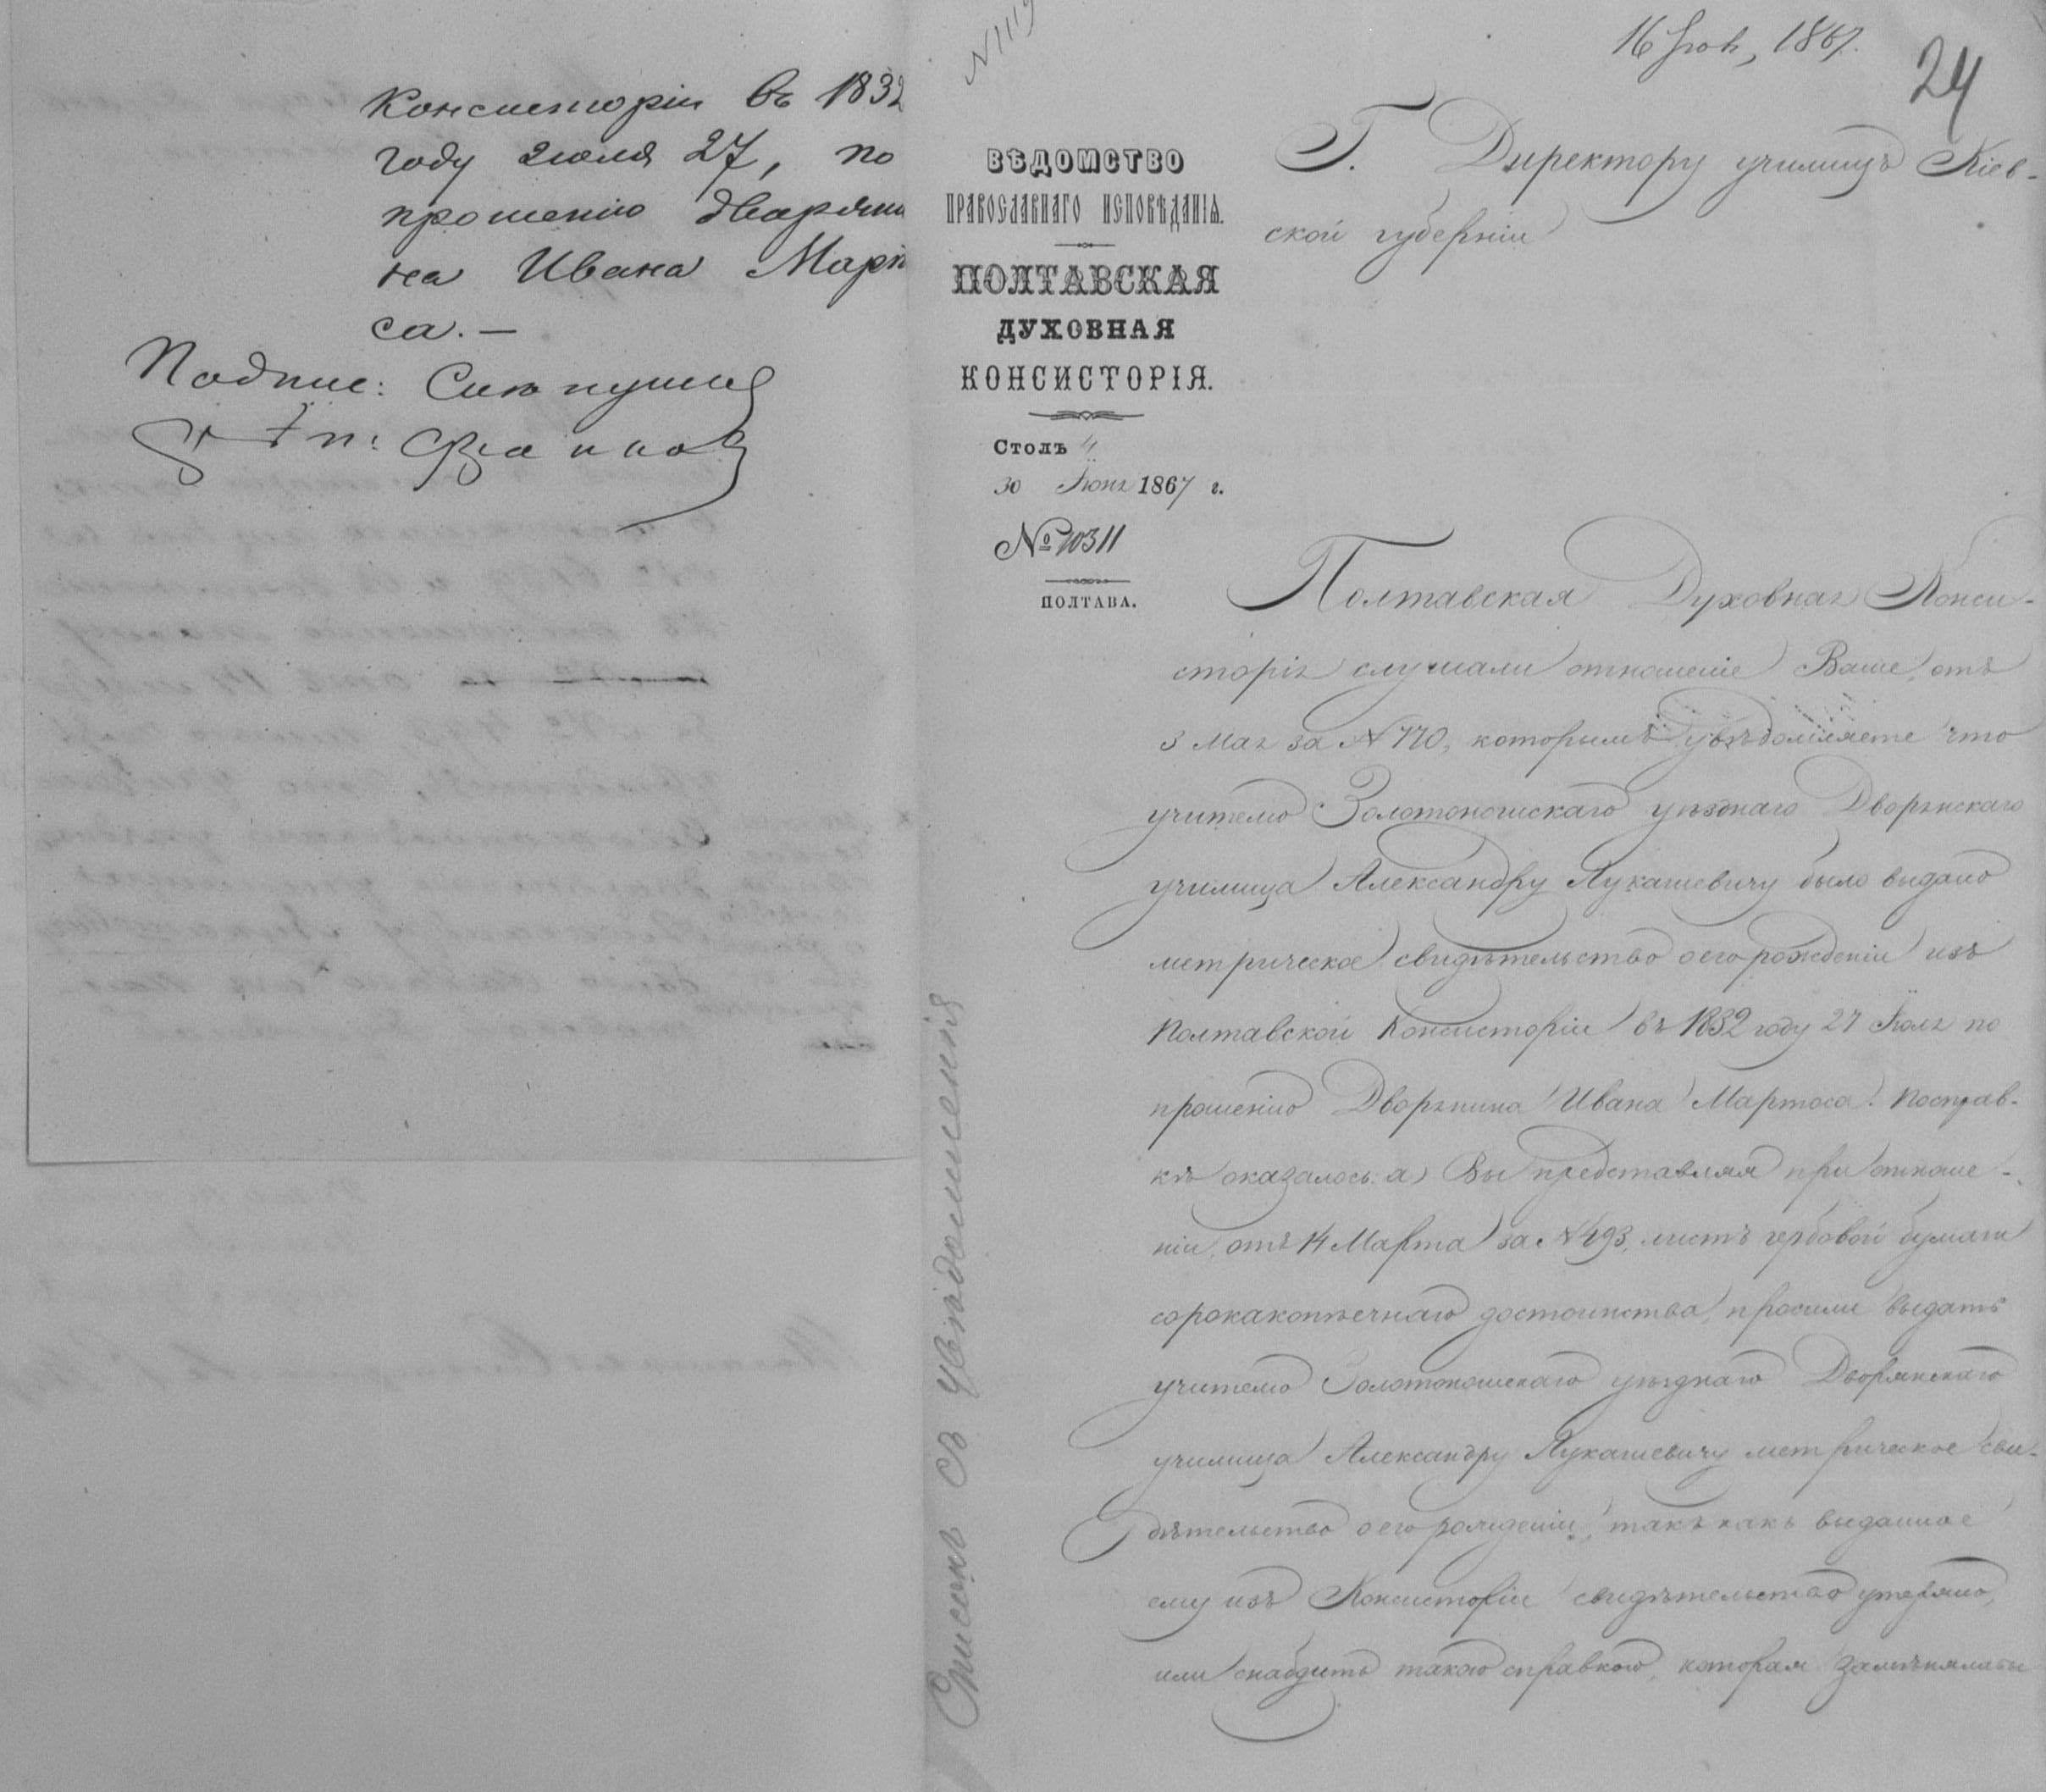 Консисторіи въ 1832
году Іюля 27, по
прошенію дворяни
на Ивана Марто
са. —
Подпис:
N 1119
1867.
24
ВѢДОМСТВО
ПРАВОСЛАВНАГО ИСПОВѢДАНІЯ.
ПОЛТАВСКАЯ
ДУХОВНАЯ
КОНСИСТОРІЯ.
Столъ 4
30 Іюня 1867 г.
№ 10311
ПОЛТАВА.
Г. Директору училищъ Кіев-
ской губерніи
Полтавская Духовная Конси-
сторія слушали отношеніе Ваше, отъ
3 Мая за N 770, которымъ увѣдомляете что
учителю Золотоношскаго уѣзднаго Дворянскаго
училища Александру Лукашевичу было выдано
метрическое свидѣтельство о его рожденіи изъ
Полтавской Консисторіи въ 1832 году 27 Іюля по
прошенію Дворянина Ивана Мартоса. По справ-
кѣ оказалось: а) Вы представляя при отноше-
ніи, отъ 14 Марта за N 493, листъ гербовой бумаги
сорокакопѣечнаго достоинства, просили выдать
учителю Золотоношскаго уѣзднаго Дворянскаго
училища Александру Лукашевичу метрическое сви-
дѣтельство о его рожденіи, такъ какъ выданное
ему изъ Консисторіи свидѣтельство утеряно,
или снабдить такою справкою, которая замѣнялабы
Списокъ съ увѣдомленія